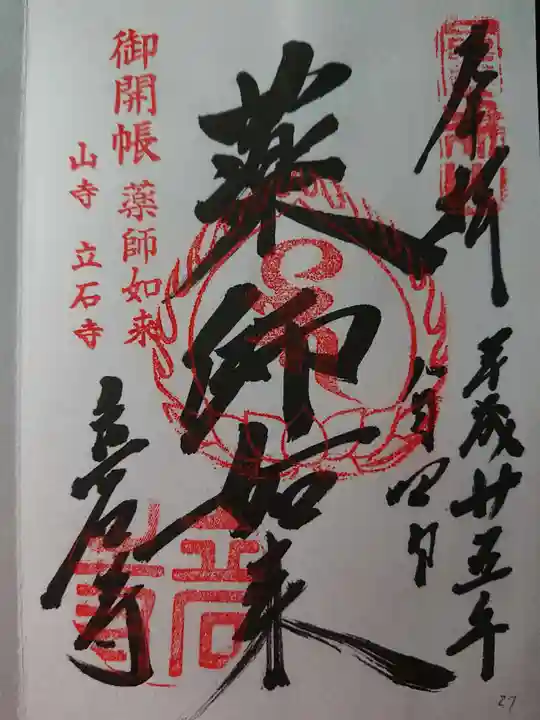 奉拝
平成廿五年
月四日
薬師如来
立石寺
御開帳 薬師如来
山寺 立石寺
27